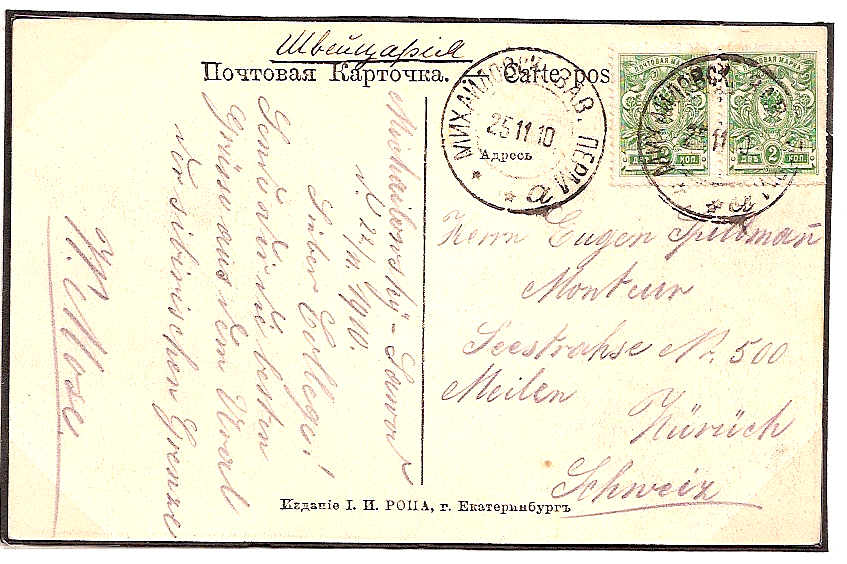 Швейцарія
Почтовая Карточка. — Carte pos
Адресъ
МИХАЙЛОВСК. ЗАВ. ПЕРМ.
25 11 10
а
ПОЧТОВАЯ МАРКА
ДВѢ 2 КОП.
ПОЧТОВАЯ МАРКА
ДВѢ 2 КОП.
МИХАЙЛОВСК. ЗАВ.
25 11
а
Michailowsky-Sawod
d. 24/11. 1910.
Lieber College!
Sende dir die besten
Grüsse aus dem Ural
der sibirischen Grenze
Herrn Eugen
Monteur
Seestrahse Nr. 500
Meilen
Zürich
Schweiz
Изданіе І. И. РОПА, г. Екатеринбургъ